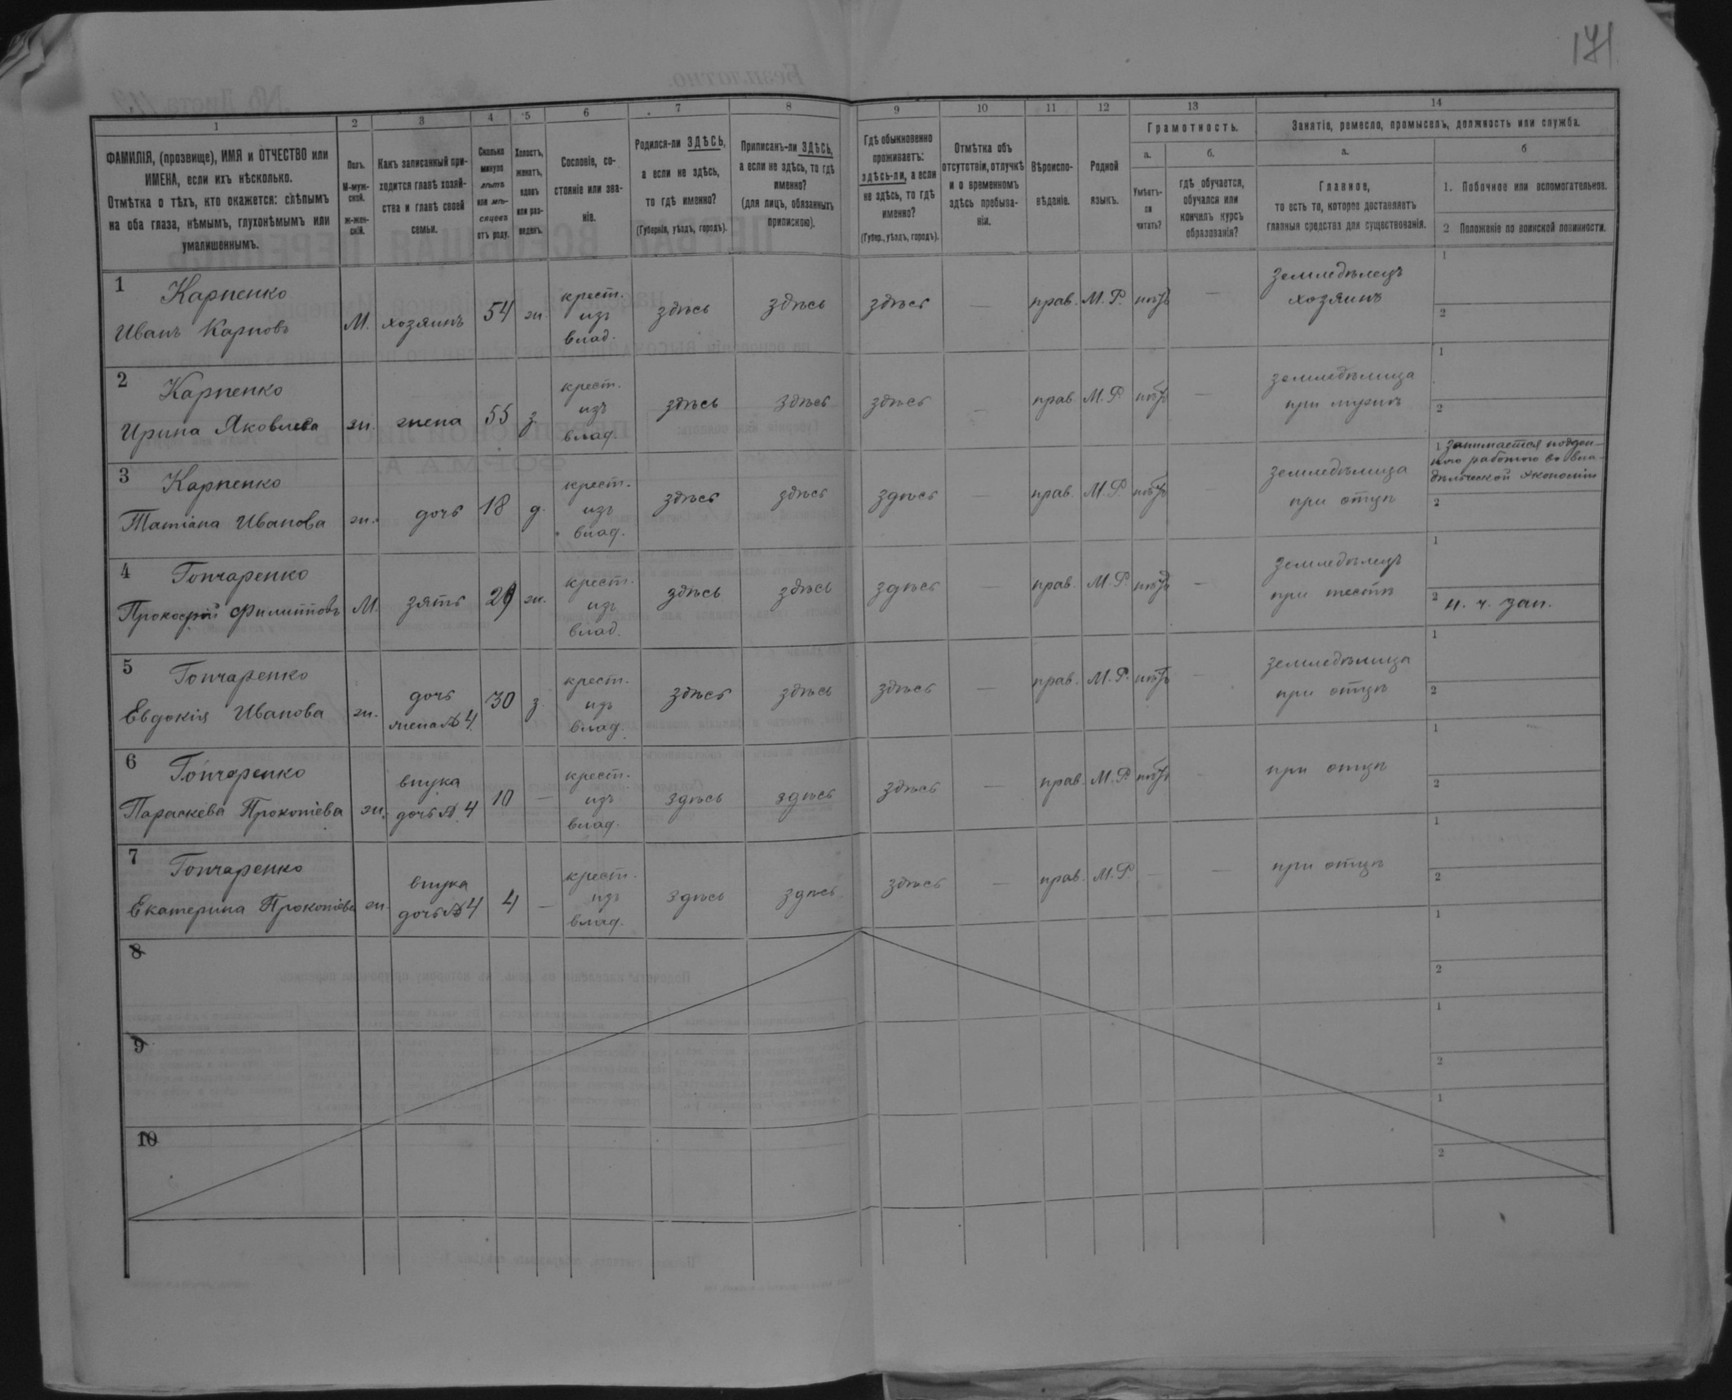 171
1 2 3 4 5 6 7 8 9 10 11 12 13 14
ФАМИЛІЯ, (прозвище), ИМЯ и ОТЧЕСТВО или
ИМЕНА, если ихъ нѣсколько.
Отмѣтка о тѣхъ, кто окажется: слѣпымъ
на оба глаза, нѣмымъ, глухонѣмымъ или
умалишеннымъ.
Полъ.
М-муж-
ской.
ж-жен-
скій.
Какъ записанный при-
ходится главѣ хозяй-
ства и главѣ своей
семьи.
Сколько
минуло
лѣтъ
или мѣ-
сяцевъ
отъ роду.
Холостъ,
женатъ,
вдовъ
или раз-
веденъ.
Сословіе, со-
стояніе или зва-
ніе.
Родился-ли ЗДѢСЬ,
а если не здѣсь,
то гдѣ именно?
(Губернія, уѣздъ, городъ).
Приписанъ-ли ЗДѢСЬ,
а если не здѣсь, то гдѣ
именно?
(для лицъ, обязанныхъ
припискою).
Гдѣ обыкновенно
проживаетъ:
здѣсь-ли, а если
не здѣсь, то гдѣ
именно?
(Губер., уѣздъ, городъ).
Отмѣтка объ
отсутствіи, отлучкѣ
и о временномъ
здѣсь пребыва-
ніи.
Вѣроиспо-
вѣданіе.
Родной
языкъ.
Грамотность.
а.
Умѣетъ-
ли
читать?
б.
гдѣ обучается,
обучался или
кончилъ курсъ
образованія?
Занятіе, ремесло, промыселъ, должность или служба.
а.
Главное,
то есть то, которое доставляетъ
главныя средства для существованія.
б
1. Побочное или вспомогательное.
2 Положеніе по воинской повинности.
1 Карпенко
Иванъ Карповъ М. хозяинъ 54 ж. крест. изъ влад. здѣсь здѣсь здѣсь — прав. М.Р. нѣтъ — земледѣлецъ хозяинъ 1 2
2 Карпенко
Ирина Яковлева ж. жена 55 з. крест. изъ влад. здѣсь здѣсь здѣсь — прав. М.Р. нѣтъ — земледѣлица при мужѣ 1 2
3 Карпенко
Татіана Иванова ж. дочь 18 д. крест. изъ влад. здѣсь здѣсь здѣсь — прав. М.Р. нѣтъ — земледѣлица при отцѣ 1 занимается поден-
ною работою во вла-
дѣльческой экономіи 2
4 Гончаренко
Прокофій Филипповъ М. зять 29 ж. крест. изъ влад. здѣсь здѣсь здѣсь — прав. М.Р. нѣтъ — земледѣлецъ при тестѣ 1 2 н. ч. зап.
5 Гончаренко
Евдокія Иванова ж. дочь жена №4 30 з. крест. изъ влад. здѣсь здѣсь здѣсь — прав. М.Р. нѣтъ — земледѣлица при отцѣ 1 2
6 Гончаренко
Параскева Прокопіева ж. внука дочь №4 10 — крест. изъ влад. здѣсь здѣсь здѣсь — прав. М.Р. нѣтъ — при отцѣ 1 2
7 Гончаренко
Екатерина Прокопіева ж. внука дочь №4 4 — крест. изъ влад. здѣсь здѣсь здѣсь — прав. М.Р. — — при отцѣ 1 2
8 1 2
9 1 2
10 1 2